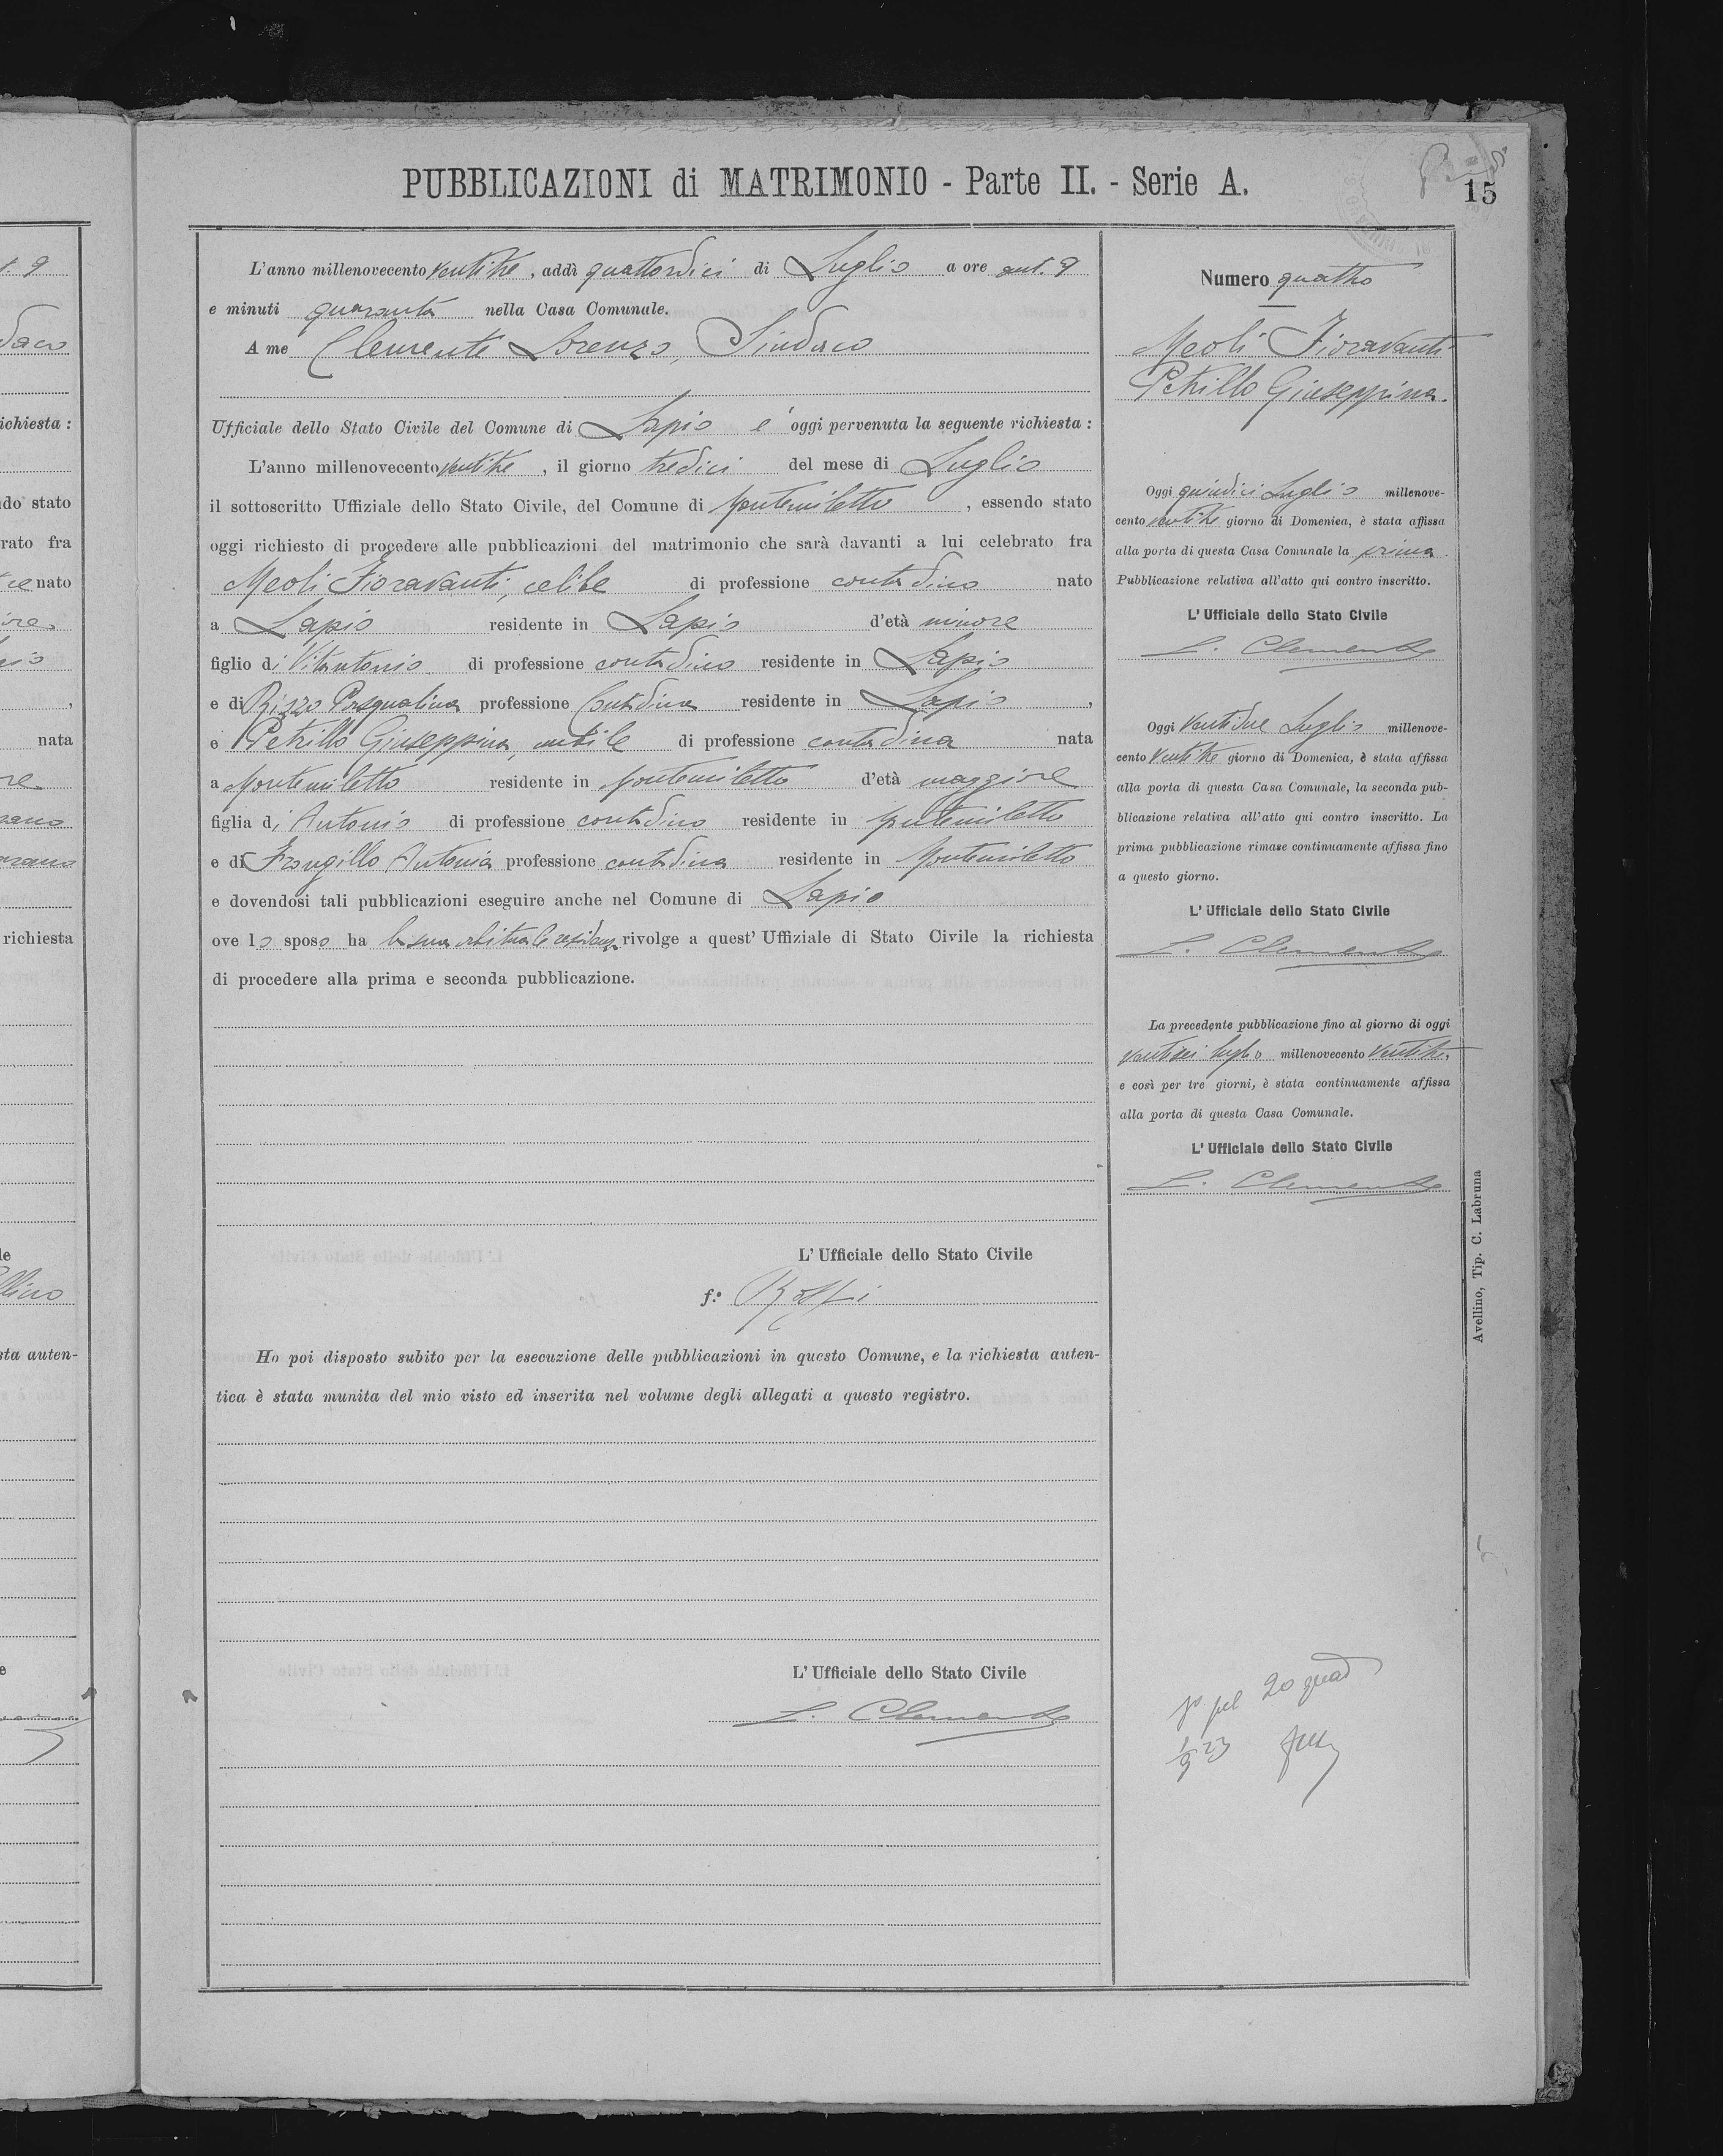 PUBBLICAZIONI di MATRIMONIO - Parte II. - Serie A.
15
L'anno millenovecento ventitre, addì quattordici di Luglio a ore ant. 9
e minuti quaranta nella Casa Comunale.
A me Clemente Lorenzo, Sindaco
Ufficiale dello Stato Civile del Comune di Lapio è oggi pervenuta la seguente richiesta:
L'anno millenovecento ventitre, il giorno tredici del mese di Luglio
il sottoscritto Uffiziale dello Stato Civile, del Comune di Montemiletto, essendo stato
oggi richiesto di procedere alle pubblicazioni del matrimonio che sarà davanti a lui celebrato fra
Meoli Fioravanti, celibe di professione contadino nato
a Lapio residente in Lapio d'età minore
figlio di Vitantonio di professione contadino residente in Lapio
e di Rizzo Pasqualina professione Contadina residente in Lapio,
e Petrillo Giuseppina, nubile di professione contadina nata
a Montemiletto residente in Montemiletto d'età maggiore
figlia di Antonio di professione contadino residente in Montemiletto
e di Frangillo Antonia professione contadina residente in Montemiletto
e dovendosi tali pubblicazioni eseguire anche nel Comune di Lapio
ove lo sposo ha la sua abituale residenza rivolge a quest' Uffiziale di Stato Civile la richiesta
di procedere alla prima e seconda pubblicazione.
L' Ufficiale dello Stato Civile
f.º Rossi
Ho poi disposto subito per la esecuzione delle pubblicazioni in questo Comune, e la richiesta auten-
tica è stata munita del mio visto ed inserita nel volume degli allegati a questo registro.
L' Ufficiale dello Stato Civile
L. Clemente
Numero quattro
Meoli Fioravanti
Petrillo Giuseppina.
Oggi quindici Luglio millenove-
cento ventitre giorno di Domenica, è stata affissa
alla porta di questa Casa Comunale la prima
Pubblicazione relativa all'atto qui contro inscritto.
L' Ufficiale dello Stato Civile
L. Clemente
Oggi ventidue Luglio millenove-
cento ventitre giorno di Domenica, è stata affissa
alla porta di questa Casa Comunale, la seconda pub-
blicazione relativa all'atto qui contro inscritto. La
prima pubblicazione rimase continuamente affissa fino
a questo giorno.
L' Ufficiale dello Stato Civile
L. Clemente
La precedente pubblicazione fino al giorno di oggi
ventisei luglio millenovecento ventitre,
e così per tre giorni, è stata continuamente affissa
alla porta di questa Casa Comunale.
L' Ufficiale dello Stato Civile
L. Clemente
Avellino, Tip. C. Labruna